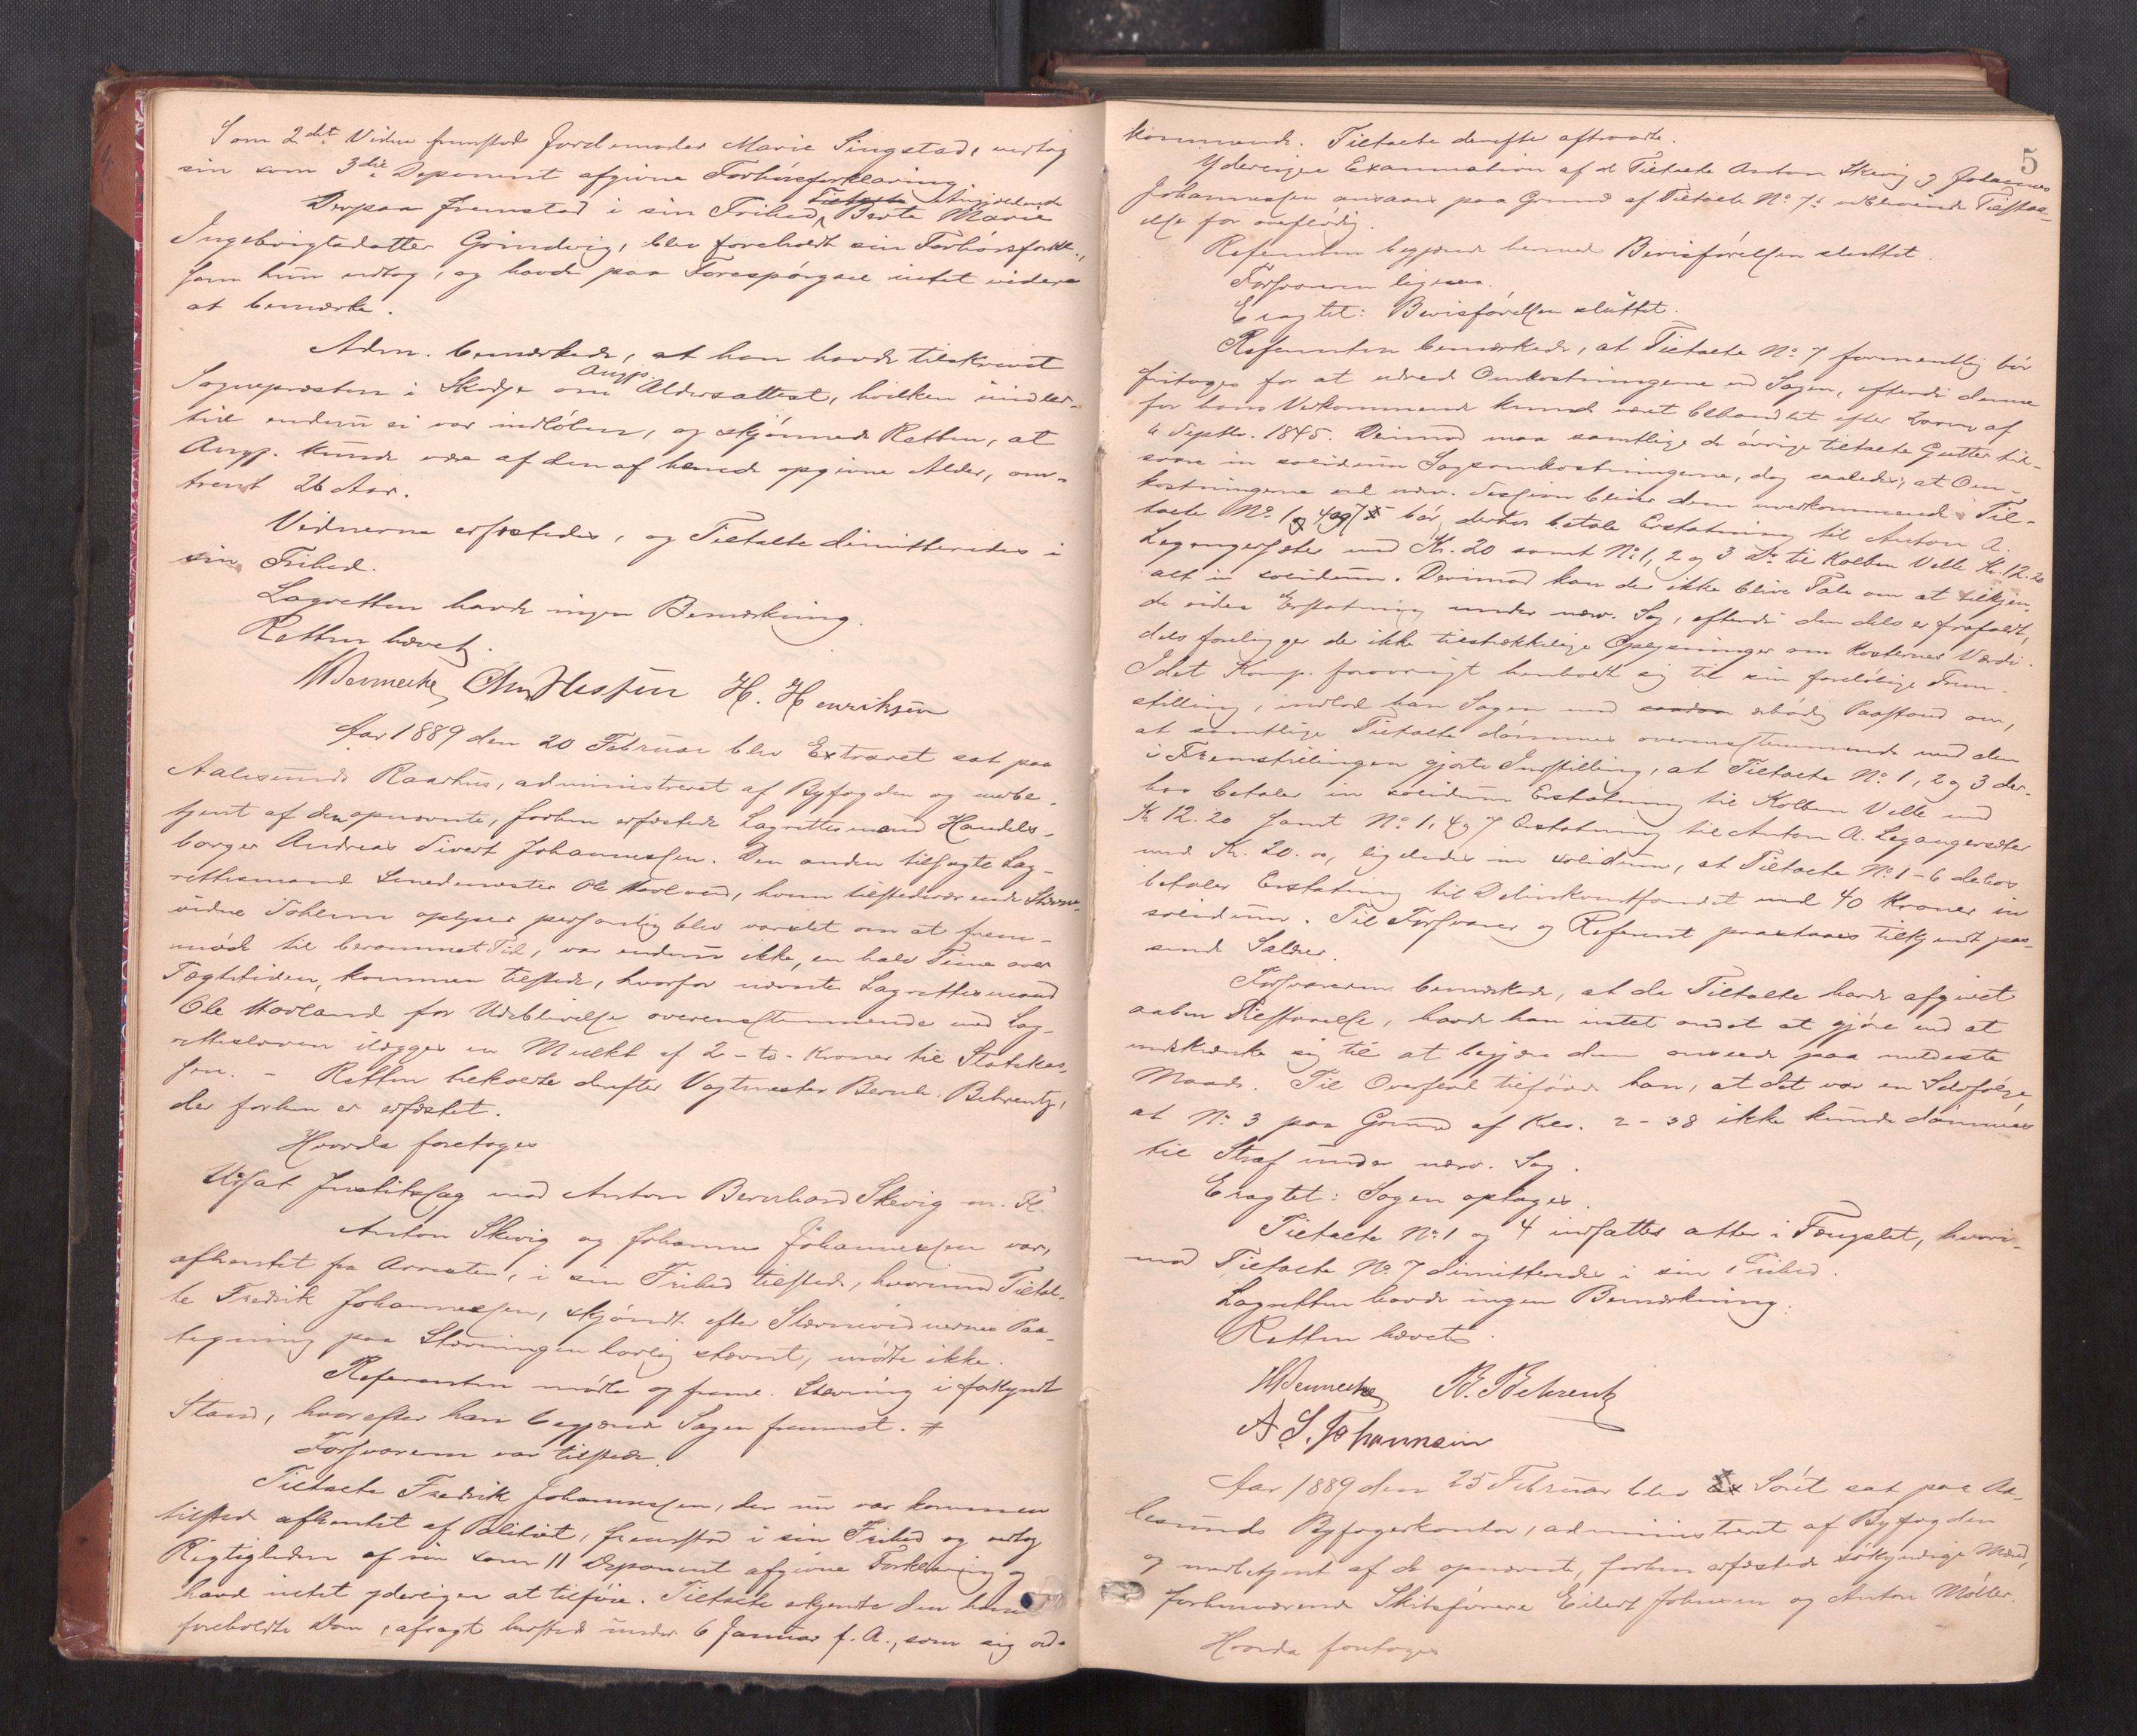 Som 2det Vidne fremstod Jordemoder Marie Singstad, vedtog
sin som 3die Deponent afgivne Forhørsforklaring.
Derpaa fremstod i sin Frihed Tiltalte Angjældende Berte Marie
Ingebrigtsdatter Grindvig, blev foreholdt sin Forhørsforkl.,
som hun vedtog, og havde paa Forespørgsel intet videre
at bemærke.
Adm. bemærkede, at han havde tilskrevet
Sognepræsten i Skodje om Angp. Aldersattest, hvilken imidler-
tid endnu ei var indløben, og skjønnede Retten, at
Angp. kunde være af den af hende opgivne Alder, om-
trent 26 Aar.
Vidnerne erfæstedes, og Tiltalte dimitteredes i
sin Frihed.
Lagretten havde ingen Bemærkning.
Retten hævet.
Wennecke Chr Nessen H. Henriksen
Aar 1889 den 20 Februar blev Extraret sat paa
Aalesunds Raadhus, administreret af Byfogden og medbe-
tjent af den opnævnte, forhen erfæstede Lagrettesmand Handels-
borger Andreas Sivert Johannessen. Den anden tilsagte Lag-
rettesmand Smedemester Ole Morland, hvem tilstedeværende Stævne-
vidne Tohlum oplyser personlig blev varslet om at frem-
møde til berammet Tid, var endnu ikke, en halv Time over
Tægtetiden, kommen tilstede, hvorfor nævnte Lagrettesmand
Ole Morland for Udeblivelse overensstemmende med Lag-
rettesloven ilægges en Mulkt af 2 - to - Kroner til Statskas-
sen. - Retten tilkaldte derefter Vagtmester Bernh. Behrentz,
der forhen er erfæstet.
Hvorda foretoges
Udsat Justitssag mod Anton Bernhard Skevig m. Fl.
Anton Skevig og Johannes Johannessen var,
afhentet fra Arresten, i sin Frihed tilstede, hvorimod Tiltal-
te Fredrik Johannessen, skjøndt efter Stævnevidnernes Paa-
tegning paa Stævningen lovlig stævnt, mødte ikke.
Referenten mødte og frem. Stævning i forkyndt
Stand, hvorefter han begjærede Sagen fremmet. #
Forsvareren var tilstede.
Tiltalte Fredrik Johannessen, der nu var kommen
tilstede afhentet af Politiet, fremstod i sin Frihed og vedtog
Rigtigheden af sin som 11 Deponent afgivne Forklaring og
havde intet yderligere at tilføie. Tiltalte vedgjendte den ham
foreholdte Dom, afsagt hersteds under 6 Januar f. A., som sig ved-
5
kommende. Tiltalte derefter aftraadte.
Yderligere Examination af de Tiltalte Anton Skevig og Johannes
Johannessen ansaaes paa Grund af Tiltalte No 7s uforbeholdne Tilstaa-
else for overflødig.
Referenten begjærede hermed Bevisførelsen sluttet.
Forsvareren ligesaa.
Eragtet: Bevisførelsen sluttet.
Referenten bemærkede, at Tiltalte No 7 formentlig bør
fritages for at udrede Omkostningerne ved Sagen, eftersom denne
for hans Vedkommende kunde været behandlet efter Loven af
6 Septbr. 1845. Derimod maa samtlige de øvrige tiltalte Gutter til-
svare in solidum Sagsomkostningerne, dog saaledes, at Om-
kostningerne ved nærv. Session bliver dem uvedkommende. Til-
talte No 1, 4 og 7 bør derhos betale Erstatning til Anton A.
Legangersæter med Kr. 20 samt No 1, 2 og 3 Do til Kolben Velle Kr. 12.20
alt in solidum. Derimod kan der ikke blive Tale om at tilkjen-
de videre Erstatning under nærv. Sag, eftersom den dels er frafaldt,
dels foreligger der ikke tilstrækkelige Oplysninger om Kosternes Værdi.
Idet Komp. forøvrigt henholdt sig til sin foreløbige Frem-
stilling, indlod han Sagen med ærbødig Paastand om,
at samtlige Tiltalte dømmes overensstemmende med den
i Fremstillingen gjorte Indstilling, at Tiltalte No 1, 2 og 3 der-
hos betaler in solidum Erstatning til Kolben Velle med
Kr 12.20 samt No 1, 4 og 7 Erstatning til Anton A. Legangersæter
med Kr. 20.00, ligeledes in solidum, at Tiltalte No 1-6 derhos
betaler Erstatning til Delinkventfondet med 40 Kroner in
solidum. Til Forsvarer og Referent paastaaes tilkjendt pas-
sende Salær.
Forsvareren bemærkede, at da Tiltalte havde afgivet
aaben Tilstaaelse, havde han intet andet at gjøre end at
indskrænke sig til at begjære dem anseede paa mildeste
Maade. Til Overflod tilføiede han, at det var en Selvfølge,
at No 3 paa Grund af Krl. 2-38 ikke kunde dømmes
til Straf under nærv. Sag.
Eragtet: Sagen optages.
Tiltalte No 1 og 4 indsattes atter i Fængslet, hvori-
mod Tiltalte No 7 dimitteredes i sin Frihed.
Lagretten havde ingen Bemærkning.
Retten hævet.
Wennecke B. Behrentz
A. S. Johannsen
Aar 1889 den 25 Februar blev Ex Søret sat paa Aa-
lesunds Byfogedkontor, administreret af Byfogden
og medbetjent af de opnævnte, forhen erfæstede søkyndige Mænd,
forhenværende Skibsførere Eilert Johnsen og Anton Møller.
Hvorda foretoges